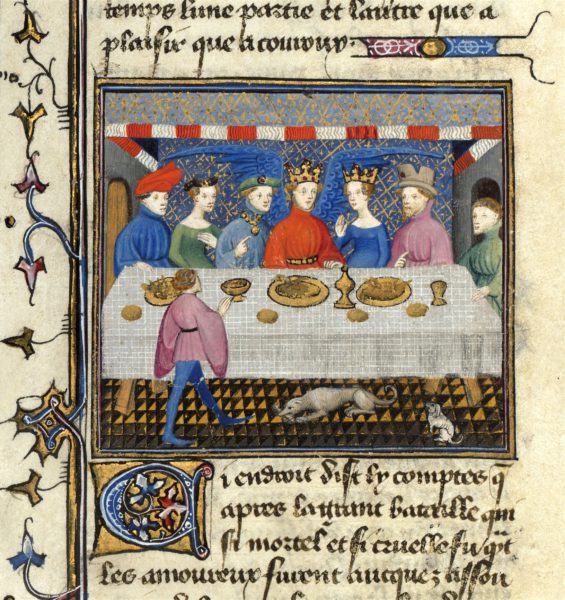 temps lune partie et lautre que a
plaisir que a couroux.
Ci endroit dist ly comptes q̄
apres la grant bataille qui
si mortel et si cruelle fu qͥl
les amoureux furent